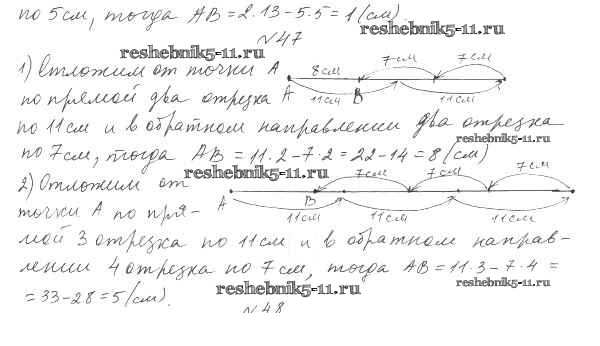 по 5см, тогда AB = 2·13 – 5·5 = 1 (см).
reshebnik5-11.ru
№47
reshebnik5-11.ru
1) Отложим от точки A
8см 7см 7см
A B
11см 11см
по прямой два отрезка
по 11см и в обратном направлении два отрезка
reshebnik5-11.ru
по 7см, тогда AB = 11·2 – 7·2 = 22 – 14 = 8 (см)
reshebnik5-11.ru
2) Отложим от
7см 7см 7см
A B
11см 11см 11см
точки A по пря-
мой 3 отрезка по 11см и в обратном направ-
лении 4 отрезка по 7см, тогда AB = 11·3 – 7·4 =
= 33 – 28 = 5 (см).
reshebnik5-11.ru
reshebnik5-11.ru
№48